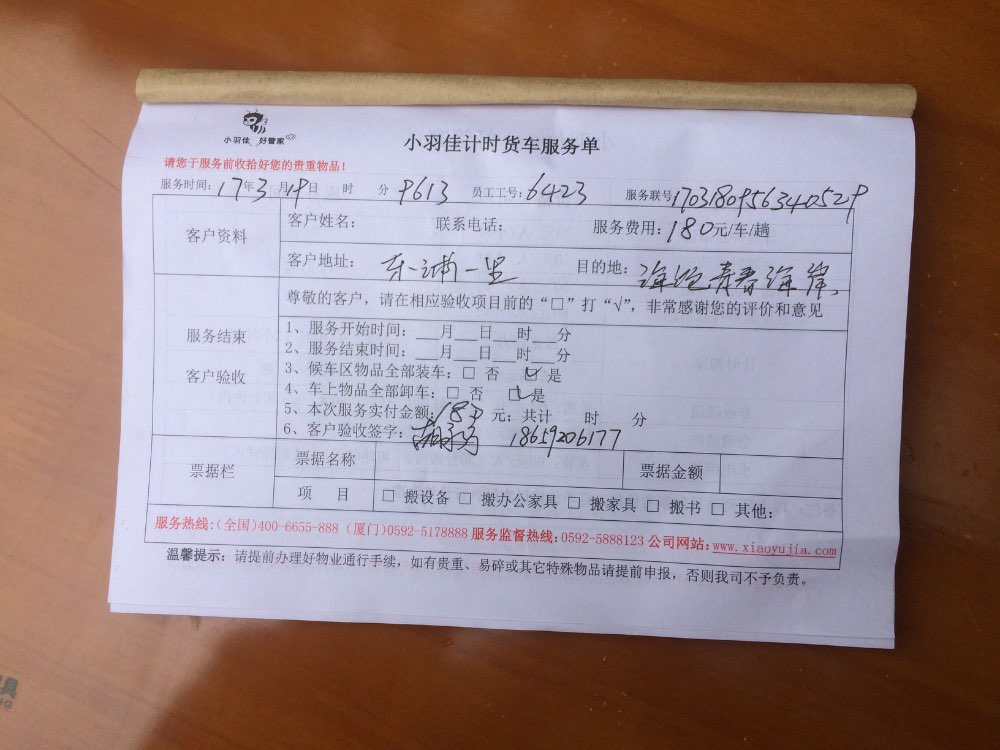 小羽佳 好管家
小羽佳计时货车服务单
请您于服务前收拾好您的贵重物品！
服务时间：17年3月19日 时 分 9613 员工工号：6423 服务联号1703180956340529
客户资料 客户姓名： 联系电话： 服务费用：180元/车/趟
客户地址： 东浦一里 目的地： 海沧青春海岸
尊敬的客户，请在相应验收项目前的“□”打“√”，非常感谢您的评价和意见
服务结束
客户验收
1、服务开始时间：___月___日___时___分
2、服务结束时间：___月___日___时___分
3、候车区物品全部装车：□ 否 ☑是
4、车上物品全部卸车：□ 否 ☑是
5、本次服务实付金额：180 元；共计 时 分
6、客户验收签字： 18659206177
票据栏 票据名称 票据金额
项 目 □ 搬设备 □ 搬办公家具 □ 搬家具 □ 搬书 □ 其他：
服务热线：（全国）400-6655-888（厦门）0592-5178888 服务监督热线：0592-5888123 公司网站：www.xiaoyujia.com
温馨提示：请提前办理好物业通行手续，如有贵重、易碎或其它特殊物品请提前申报，否则我司不予负责。